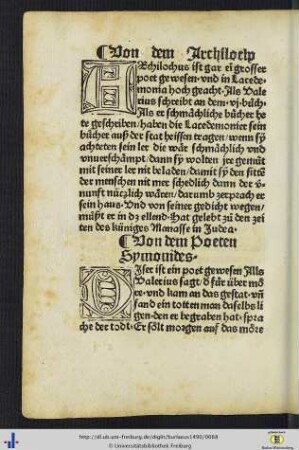 Von dem Archilochp
ARchilochus ist gar eī grosser
poet gewesen· vnd in Lacede-
monia hoch geacht· Als Vale
rius schreibt an dem· vj· bůch·
Als er schmächliche bücher he
te geschriben/ haben die Lacedemonier sein
bücher auß der stat heissen tragen/ wenn sy
achteten sein ler die wär schmächlich vnd
vnuerschämpt/ dann sy wolten jre gemüt
mit seiner ler nit beladen/ damit sy den sittē
der menschen nit mer schedlich dann der v̄-
nunft nüczlich wären/ darumb zerprach er
sein haus· Vnd von seiner gedicht wegen/
můßt er in dz ellend· Hat gelebt zů den zei
ten des küniges Manasse in Judea·
Von dem Poeten
Symonides·
DIser ist ein poet gewesen Als
Valerius sagt/ d̄ fůr über mö
re· vnd kam an das gestat· vn̄
fand ein totten man daselbs li
gen· den er begraben hat· spra
che der todt· Er sölt morgen auf das möre
http://dl.ub.uni-freiburg.de/diglit/burlaeus1490/0068
© Universitätsbibliothek Freiburg